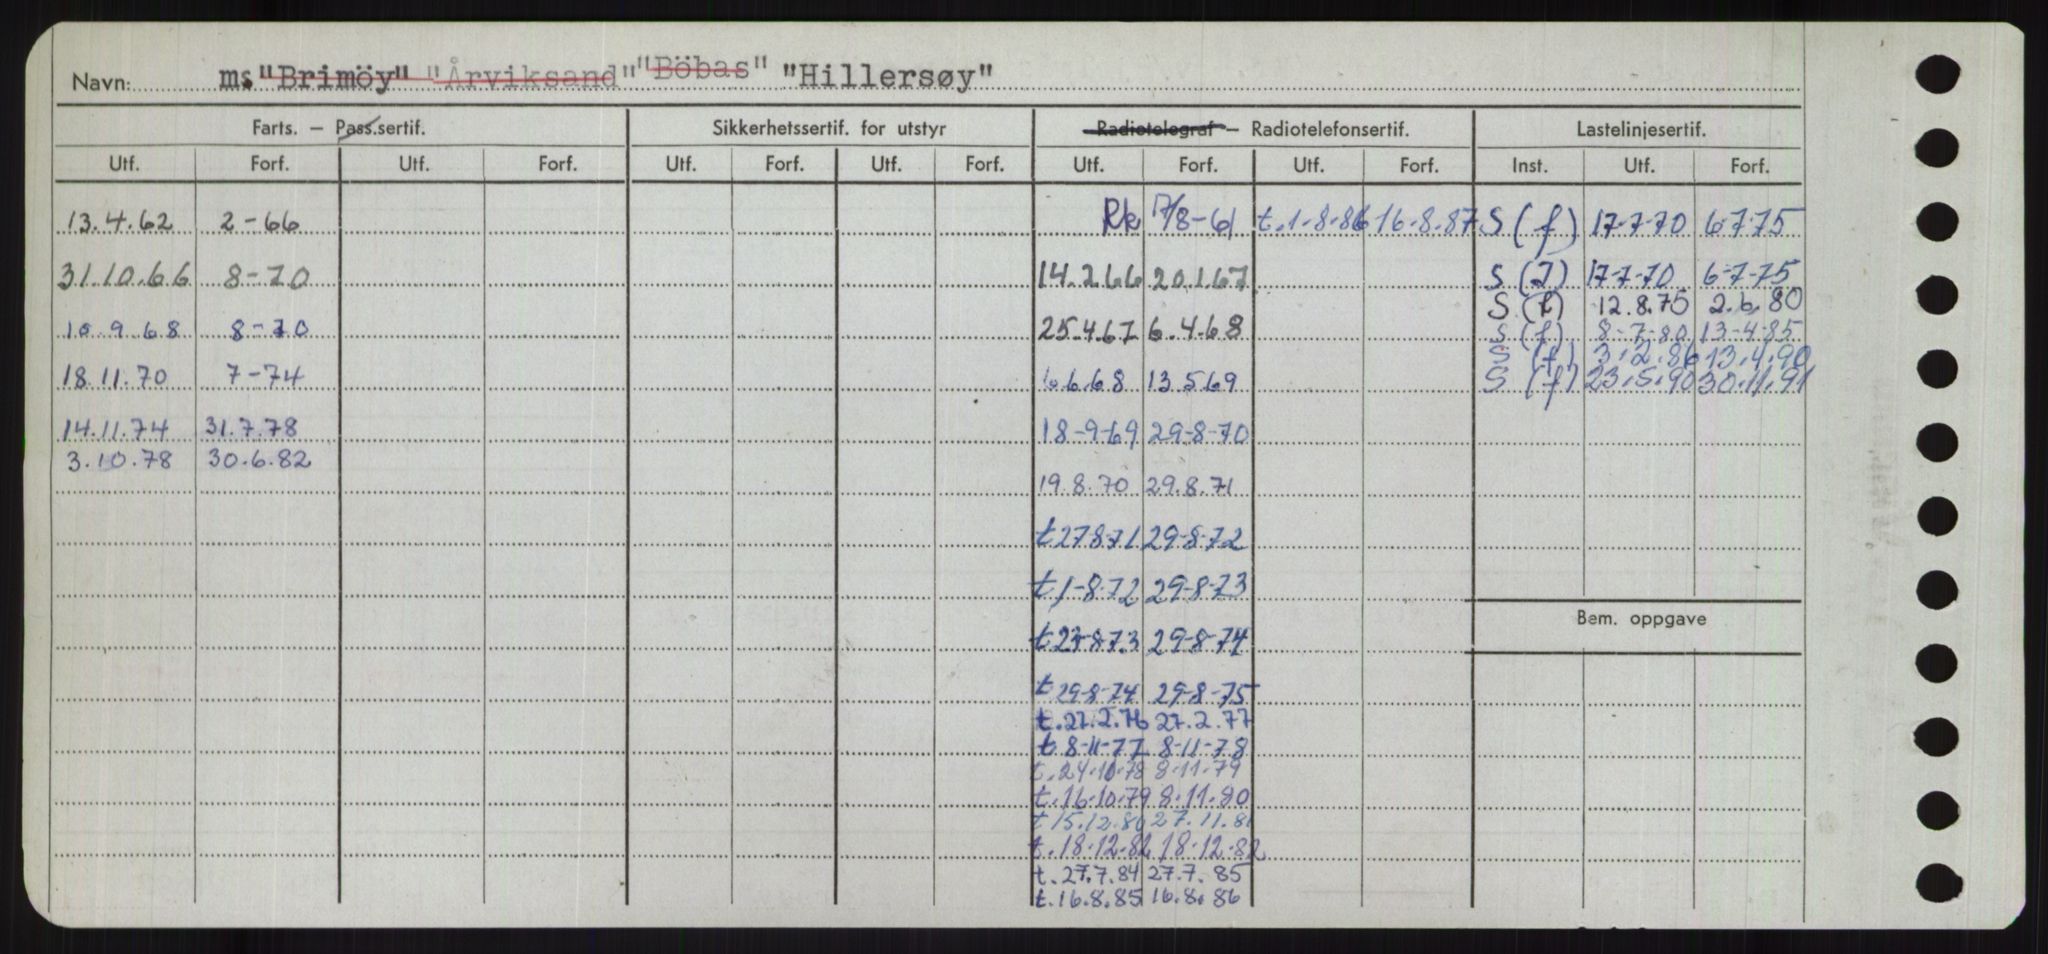 Navn: ms "Brimöy" "Årviksand" "Böbas" "Hillersøy"
Farts. – Pass.sertif. Sikkerhetssertif. for utstyr Radiotelegraf – Radiotelefonsertif. Lastelinjesertif.
Utf. Forf. Utf. Forf. Utf. Forf. Utf. Forf. Utf. Forf. Utf. Forf. Inst. Utf. Forf.
13.4.62 2-66 Rk 17/8-61 t.1-8-86 16.8.87 S (f) 17-7-70 6-7-75
31.10.66 8-70 14.2.66 20.1.67 S (f) 17-7-70 6-7-75
S (f) 12.8.75 2.6.80
10.9.68 8-70 25.4.67 6.4.68 S (f) 8-7-80 13-4-85
S (f) 3.2.86 13.4.90
18.11.70 7-74 6.6.68 13.5.69 S (f) 23.5.90 30.11.91
14.11.74 31.7.78 18-9-69 29-8-70
3.10.78 30.6.82
19.8.70 29.8.71
t 27.8.71 29-8-72
t 1-8-72 29-8-73
Bem. oppgave
t 23-8-73 29-8-74
t 29-8-74 29-8-75
t.27.2.76 27.2.77
t 8-11-77 8-11-78
t.24.10.78 8.11.79
t.16.10.79 8.11.80
t 15.12.80 27.11.81
t.18.12.82 18.12.82
t.27.7.84 27.7.85
t.16.8.85 16.8.86